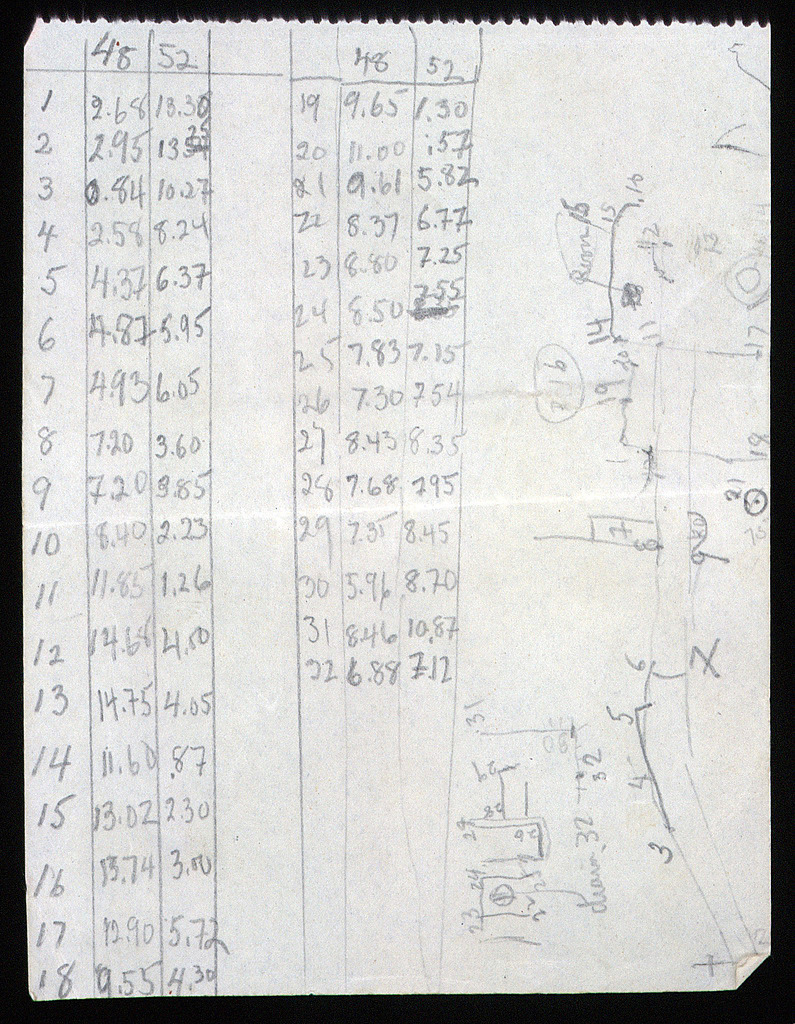 48 52
1 2.68 13.30
2 2.95 13 25
3 0.84 10.27
4 2.58 8.24
5 4.37 6.37
6 4.87 5.95
7 4.93 6.05
8 7.20 3.60
9 7.20 3.85
10 8.40 2.23
11 11.85 1.26
12 14.68 4.50
13 14.75 4.05
14 11.60 .87
15 13.02 2.30
16 13.74 3.00
17 12.90 5.72
18 9.55 4.30
48 52
19 9.65 1.30
20 11.00 .57
21 9.61 5.82
22 8.37 6.77
23 8.80 7.25
24 8.50 7.55
25 7.83 7.15
26 7.30 7.54
27 8.43 8.35
28 7.68 7.95
29 7.35 8.45
30 5.96 8.70
31 8.46 10.87
32 6.88 7.12
Room 16
15
16
14
12
11
17
19
18
21
7
8
9
6
5
4
3
2
31
30
drain 32
32
23
24